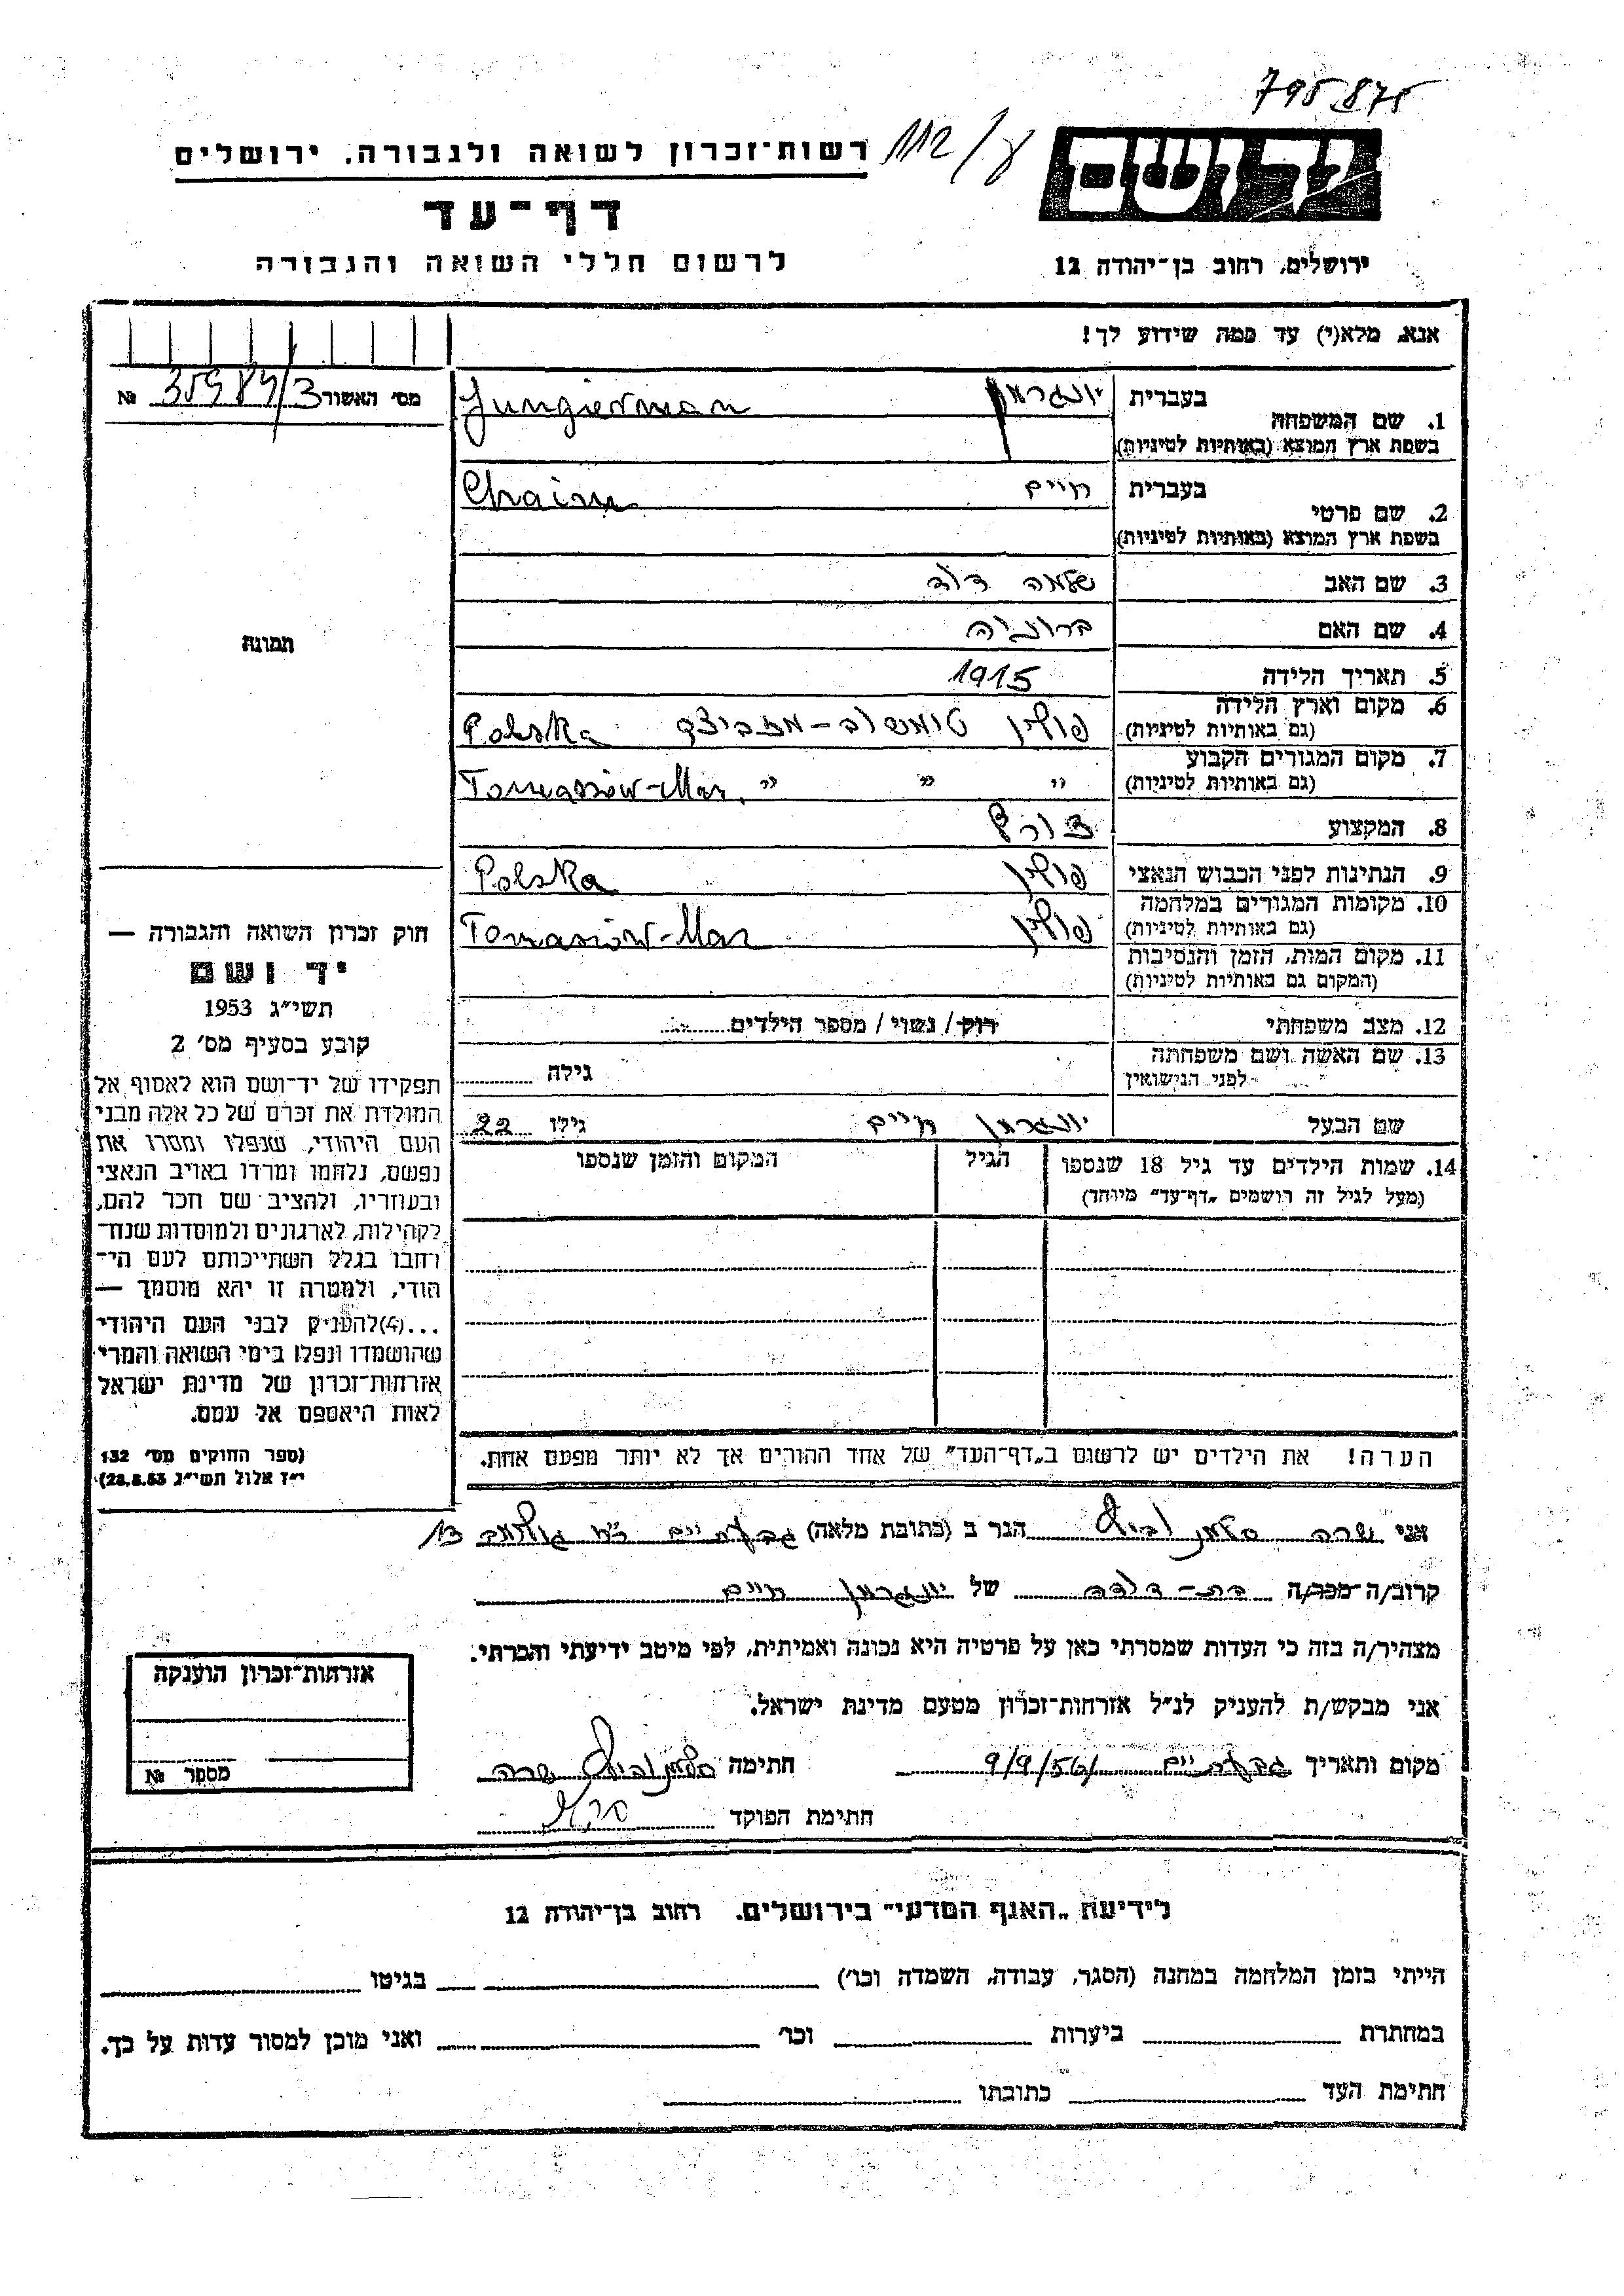 795875
רשות־זכרון לשואה ולגבורה, ירושלים
112/ע
יד ושם
דף־עד
לרשום חללי השואה והגבורה
ירושלים, רחוב בן־יהודה 12
אנא, מלא(י) עד כמה שידוע לך!
מס׳ האשור 35984/3 №
1. שם המשפחה בעברית יונגרמן
בשפת ארץ המוצא (באותיות לטיניות) Jungierman
2. שם פרטי בעברית חיים
בשפת ארץ המוצא (באותיות לטיניות) Chaim
3. שם האב שלמה דוד
4. שם האם ברוניה
תמונה
5. תאריך הלידה 1915
6. מקום וארץ הלידה (גם באותיות לטיניות) פולין טומשוב-מזביצק Polska
7. מקום המגורים הקבוע (גם באותיות לטיניות) " " " Tomasów-Maz.
8. המקצוע צורף
9. הנתינות לפני הכבוש הנאצי פולין Polska
10. מקומות המגורים במלחמה (גם באותיות לטיניות) פולין Tomasiów-Maz
11. מקום המות, הזמן והנסיבות (המקום גם באותיות לטיניות)
12. מצב משפחתי רוק / נשוי / מספר הילדים
13. שם האשה ושם משפחתה לפני הנישואין גילה
שם הבעל יונגרמן חיים גילו 22
14. שמות הילדים עד גיל 18 שנספו הגיל המקום והזמן שנספו
(מעל לגיל זה רושמים „דף־עד" מיוחד)
חוק זכרון השואה והגבורה —
יד ושם
תשי״ג 1953
קובע בסעיף מס׳ 2
תפקידו של יד־ושם הוא לאסוף אל
המולדת את זכרם של כל אלה מבני
העם היהודי, שנפלו ומסרו את
נפשם, נלחמו ומרדו באויב הנאצי
ובעוזריו, ולהציב שם וזכר להם,
לקהילות, לארגונים ולמוסדות שנח־
רבו בגלל השתייכותם לעם הי־
הודי, ולמטרה זו יהא מוסמך —
...(4)להעניק לבני העם היהודי
שהושמדו ונפלו בימי השואה והמרי
אזרחות־זכרון של מדינת ישראל
לאות היאספם אל עמם.
(ספר החוקים מס׳ 132
י״ז אלול תשי״ג 28.8.53)
הערה! את הילדים יש לרשום ב„דף־העד" של אחד ההורים אך לא יותר מפעם אחת.
אני שרה הגר ב (כתובת מלאה) גבעתיים 13
קרוב/ה־מכר/ה בת-דודה של יונגרמן חיים
מצהיר/ה בזה כי העדות שמסרתי כאן על פרטיה היא נכונה ואמיתית, לפי מיטב ידיעתי והכרתי.
אני מבקש/ת להעניק לנ״ל אזרחות־זכרון מטעם מדינת ישראל.
מקום ותאריך גבעתיים 9/9/56 חתימה שרה
חתימת הפוקד
אזרחות־זכרון הוענקה
מספר №
לידיעת „האגף המדעי" בירושלים, רחוב בן־יהודה 12
הייתי בזמן המלחמה במחנה (הסגר, עבודה, השמדה וכו׳) בגיטו
במחתרת ביערות וכו׳ ואני מוכן למסור עדות על כך.
חתימת העד כתובתו